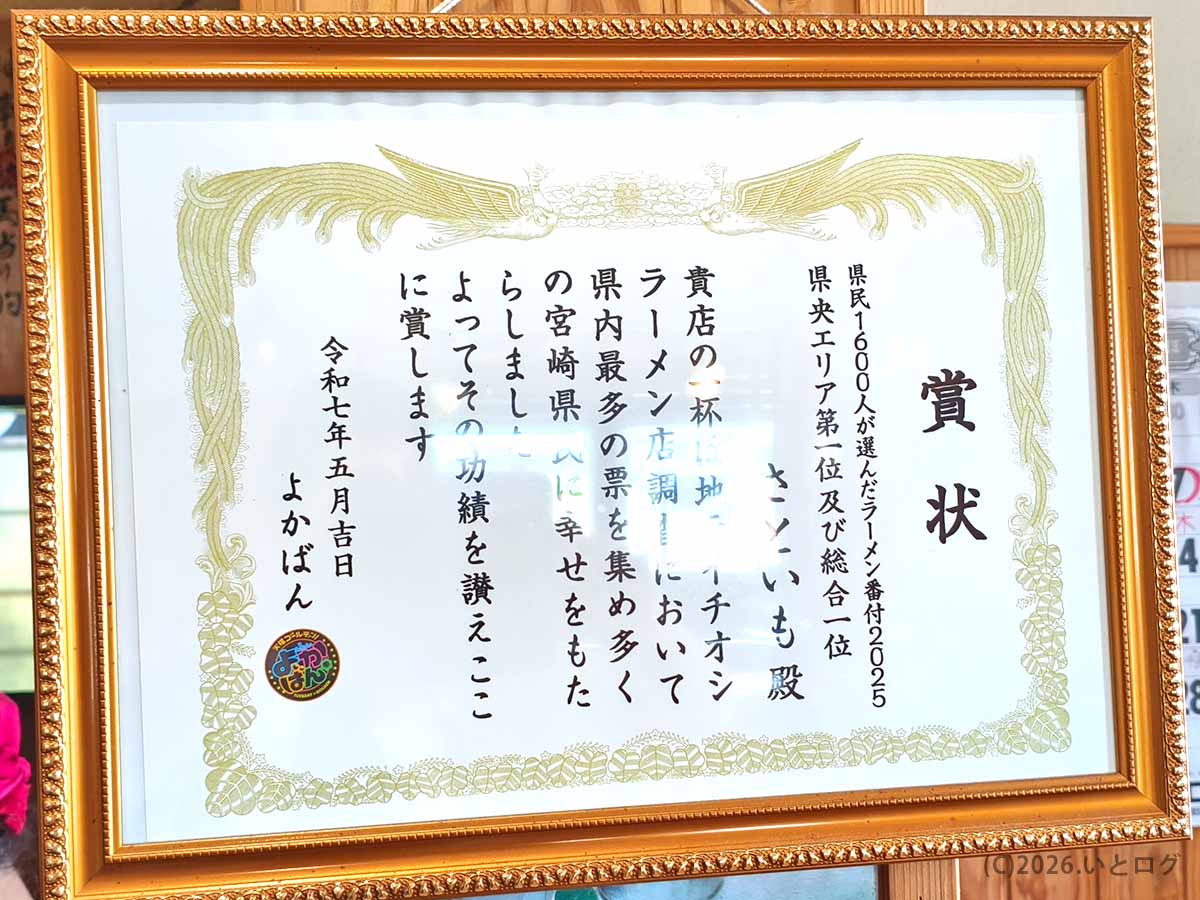 賞状
県民1600人が選んだラーメン番付2025
県央エリア第一位及び総合一位
さといも殿
貴店の一杯は地元イチオシ
ラーメン店調査において
県内最多の票を集め多く
の宮崎県民に幸せをもた
らしました
よってその功績を讃えここ
に賞します
令和七年五月吉日
よかばん
よかばん
(C)2026.いとログ